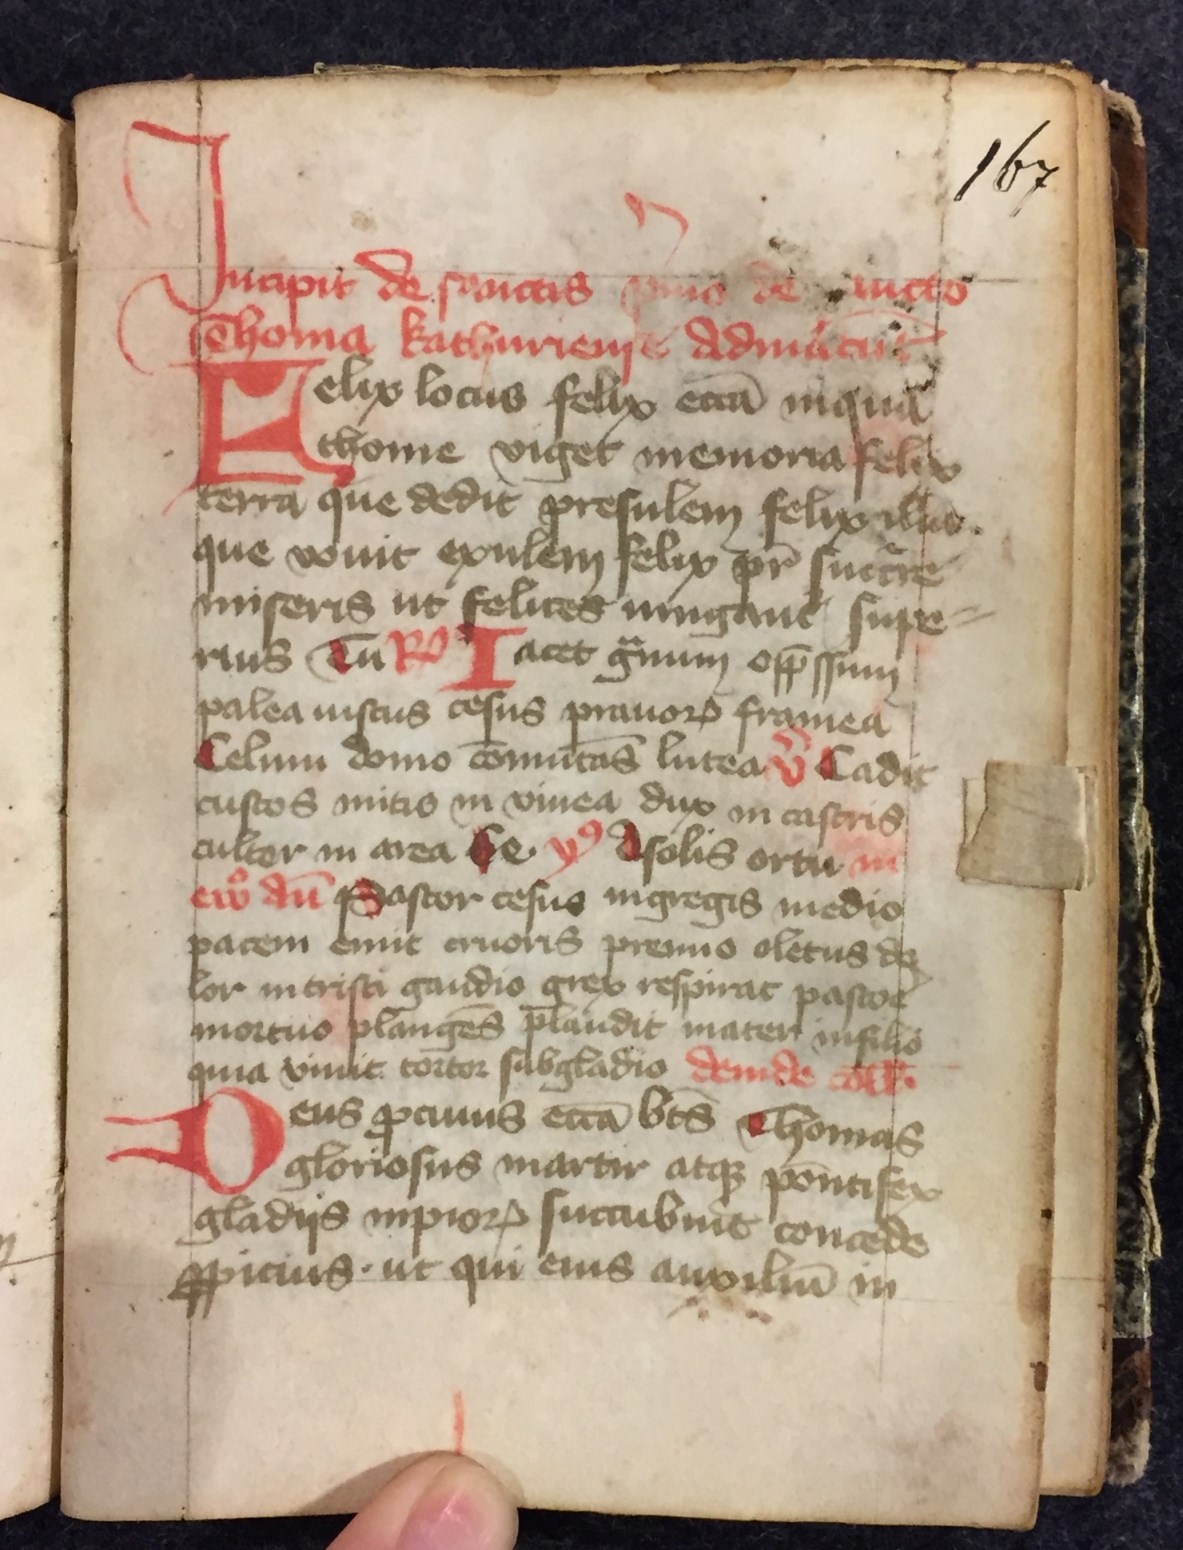 167
Incipit de sanctis pmo de sancto
Thoma kathuriensȩ Ad
Felix locus felix ecca inqua
thome viget memoria felix
terra que dedit presulem felix illa
que vouit exulem felix pr succre
miseris ut felices iungant supe-
rius Cu R Iacet gnum oppssum
palea iustus cesus prauoꝝ framea
Celum domo comutas lutea v Cadit
custos uitis in vinea dux in castris
cultor in area Ce. vꝰ A solis ortu in
eW̉ au Pastor cesus in gregis medio
pacem emit cruoris precio o letus do
lor in tristi gaudio grex respirat pastoe
mortuo planges plaudit mater in filio
quia viuit tortor sub gladio deinde coll
Deus p cuius ecca bts Thomas
gloriosus martir atqꝫ pontifex
gladijs inpioꝝ succubuit concede
ꝓpicius. ut qui eius auxiliu in